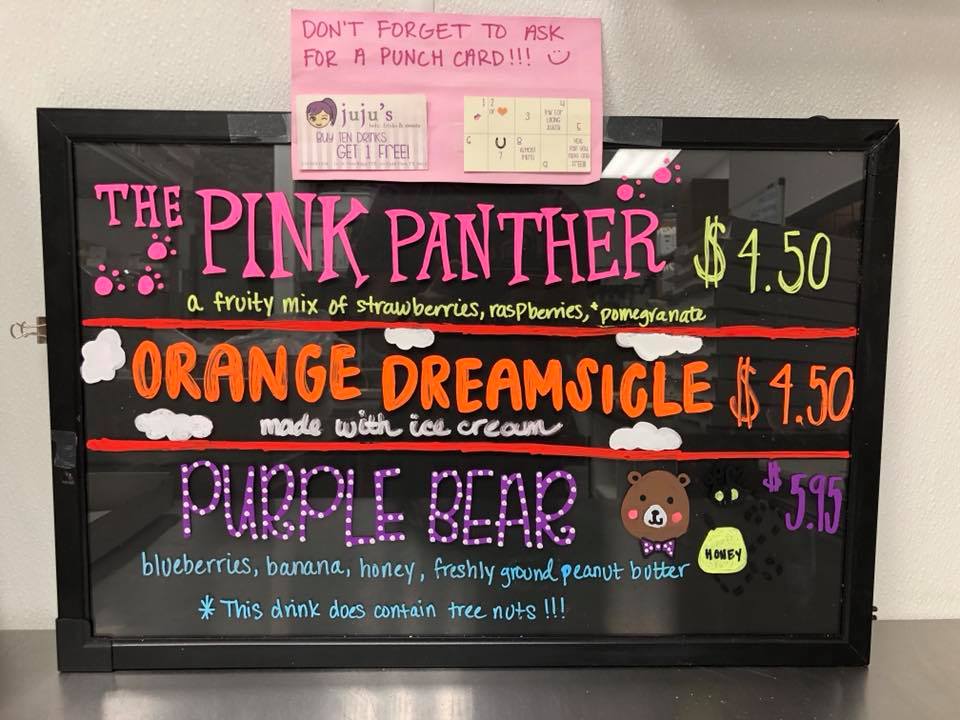 DON'T FORGET TO ASK
FOR A PUNCH CARD!!!
juju's
BUY TEN DRINKS
GET 1 FREE!
1 2 3 4 5
6 7 8 9
THE PINK PANTHER $4.50
a fruity mix of strawberries, raspberries, + pomegranate
ORANGE DREAMSICLE $4.50
made with ice cream
PURPLE BEAR $5.95
HONEY
blueberries, banana, honey, freshly ground peanut butter
* This drink does contain tree nuts!!!